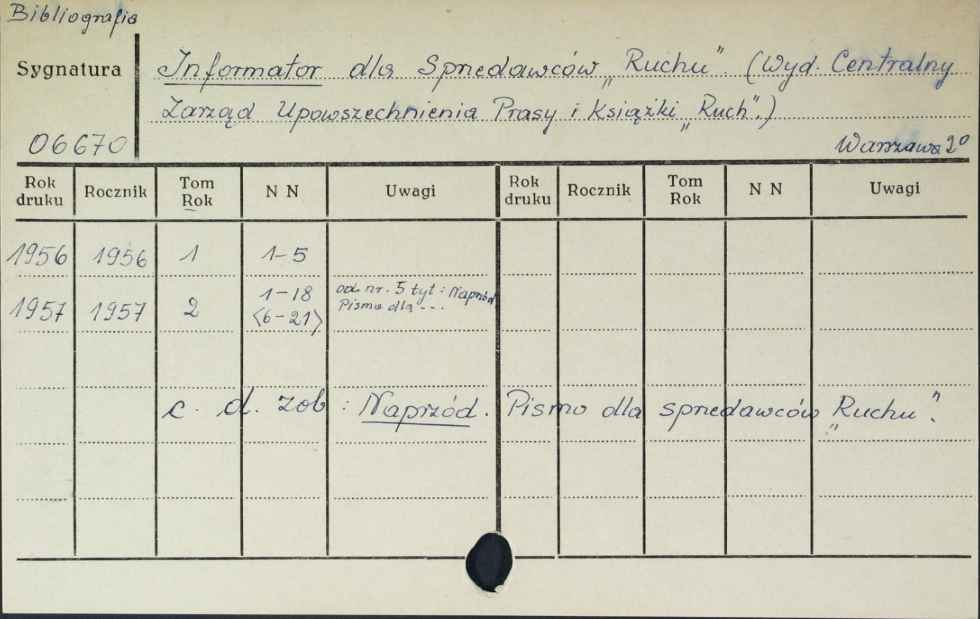 Bibliografia
Sygnatura
Informator dla Sprzedawców „Ruchu". (Wyd. Centralny
Zarząd Upowszechnienia Prasy i Książki „Ruch".)
06670
Warszawa 2°
Rok druku Rocznik Tom Rok N N Uwagi Rok druku Rocznik Tom Rok N N Uwagi
1956 1956 1 1-5
1957 1957 2 1-18 <6-21> od. nr. 5 tyt: Naprzód
Pismo dla ---
c. d. zob: Naprzód. Pismo dla sprzedawców „Ruchu".